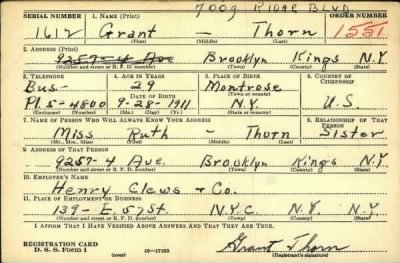 7009 RIDGE BLVD
SERIAL NUMBER 1. NAME (Print) ORDER NUMBER
1612 Grant — Thorn 1551
(First) (Middle) (Last)
2. ADDRESS (Print)
9257-4 Ave Brooklyn Kings N.Y.
(Number and street or R. F. D. number) (Town) (County) (State)
3. TELEPHONE 4. AGE IN YEARS 5. PLACE OF BIRTH 6. COUNTRY OF CITIZENSHIP
Bus- 29 Montrose
DATE OF BIRTH (Town or county)
Pl. 5-4800 9-28-1911 N.Y. U.S.
(Exchange) (Number) (Mo.) (Day) (Yr.) (State or country)
7. NAME OF PERSON WHO WILL ALWAYS KNOW YOUR ADDRESS 8. RELATIONSHIP OF THAT PERSON
Miss Ruth — Thorn Sister
(Mr., Mrs., Miss) (First) (Middle) (Last)
9. ADDRESS OF THAT PERSON
9257-4 Ave. Brooklyn Kings N.Y
(Number and street or R. F. D. number) (Town) (County) (State)
10. EMPLOYER'S NAME
Henry Clews & Co.
11. PLACE OF EMPLOYMENT OR BUSINESS
139- E. 57 St. N.Y.C. N.Y. N.Y.
(Number and street or R. F. D. number) (Town) (County) (State)
I AFFIRM THAT I HAVE VERIFIED ABOVE ANSWERS AND THAT THEY ARE TRUE.
REGISTRATION CARD
D. S. S. Form 1 (over) 16—17105 Grant Thorn
(Registrant's signature)